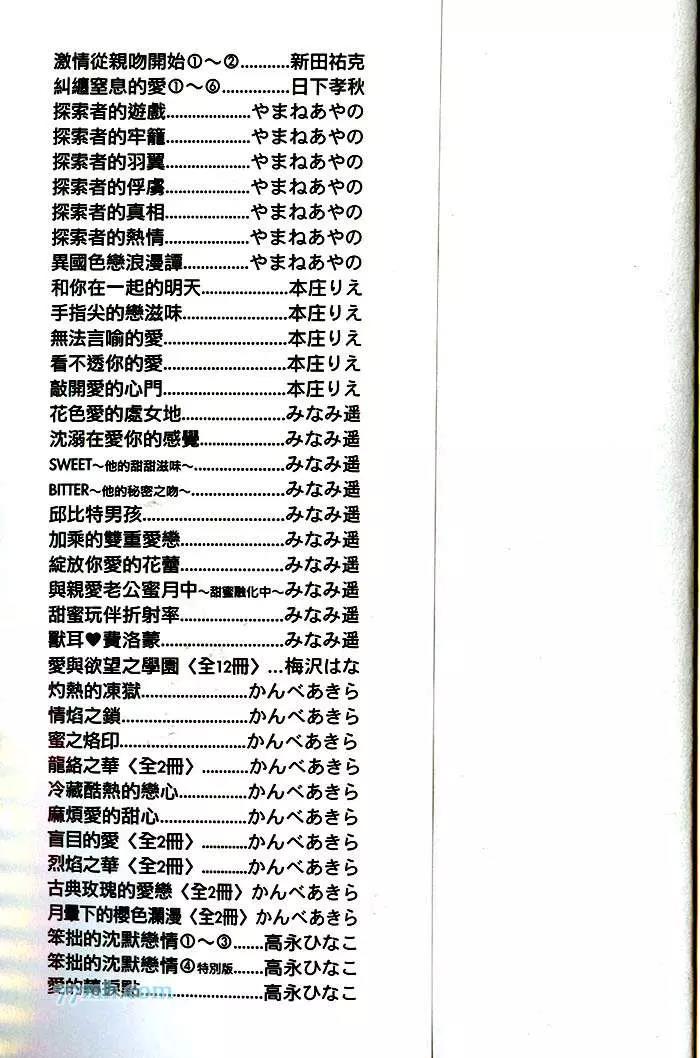 激情從親吻開始①～②...........新田祐克
糾纏窒息的愛①～⑥...............日下孝秋
探索者的遊戲.....................やまねあやの
探索者的牢籠.....................やまねあやの
探索者的羽翼.....................やまねあやの
探索者的俘虜.....................やまねあやの
探索者的真相.....................やまねあやの
探索者的熱情.....................やまねあやの
異國色戀浪漫譚................やまねあやの
和你在一起的明天.....................本庄りえ
手指尖的戀滋味..........................本庄りえ
無法言喻的愛...............................本庄りえ
看不透你的愛...............................本庄りえ
敲開愛的心門...............................本庄りえ
花色愛的處女地..........................みなみ遥
沈溺在愛你的感覺.....................みなみ遥
SWEET～他的甜甜滋味～......................みなみ遥
BITTER～他的秘密之吻～.......................みなみ遥
邱比特男孩...................................みなみ遥
加乘的雙重愛戀..........................みなみ遥
綻放你愛的花蕾..........................みなみ遥
與親愛老公蜜月中～甜蜜融化中～みなみ遥
甜蜜玩伴折射率..........................みなみ遥
獸耳♥費洛蒙...............................みなみ遥
愛與欲望之學園〈全12冊〉...梅沢はな
灼熱的凍獄..........................かんべあきら
情焰之鎖...............................かんべあきら
蜜之烙印...............................かんべあきら
龍絡之華〈全2冊〉...........かんべあきら
冷藏酷熱的戀心.................かんべあきら
麻煩愛的甜心......................かんべあきら
盲目的愛〈全2冊〉...........かんべあきら
烈焰之華〈全2冊〉...........かんべあきら
古典玫瑰的愛戀〈全2冊〉かんべあきら
月暈下的櫻色瀾漫〈全2冊〉かんべあきら
笨拙的沈默戀情①～③.......高永ひなこ
笨拙的沈默戀情④特別版.......高永ひなこ
愛的轉捩點..............................高永ひなこ